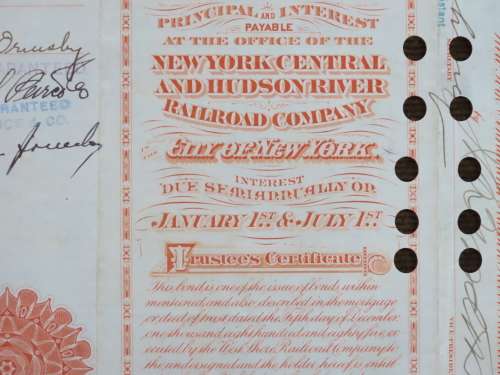 PRINCIPAL AND INTEREST
PAYABLE
AT THE OFFICE OF THE
NEW YORK CENTRAL
AND HUDSON RIVER
RAILROAD COMPANY
IN THE
CITY OF NEW YORK.
INTEREST
DUE SEMIANNUALLY ON
JANUARY 1ST. & JULY 1ST.
Trustee's Certificate.
This bond is one of the issue of bonds, within
mentioned, and also described in the mortgage
or deed of trust dated the fifth day of December,
one thousand eight hundred and eighty five, ex-
ecuted by the West Shore Railroad company to
the undersigned and the holder hereof is entitl
Ormsby
GUARANTEED
GUARANTEED
& CO.
Ormsby